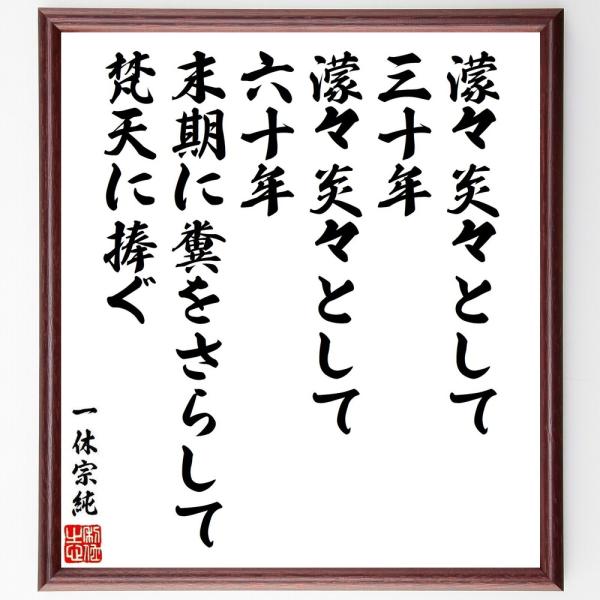 濛々炎々として
三十年
濛々炎々として
六十年
末期に糞をさらして
梵天に捧ぐ
一休宗純